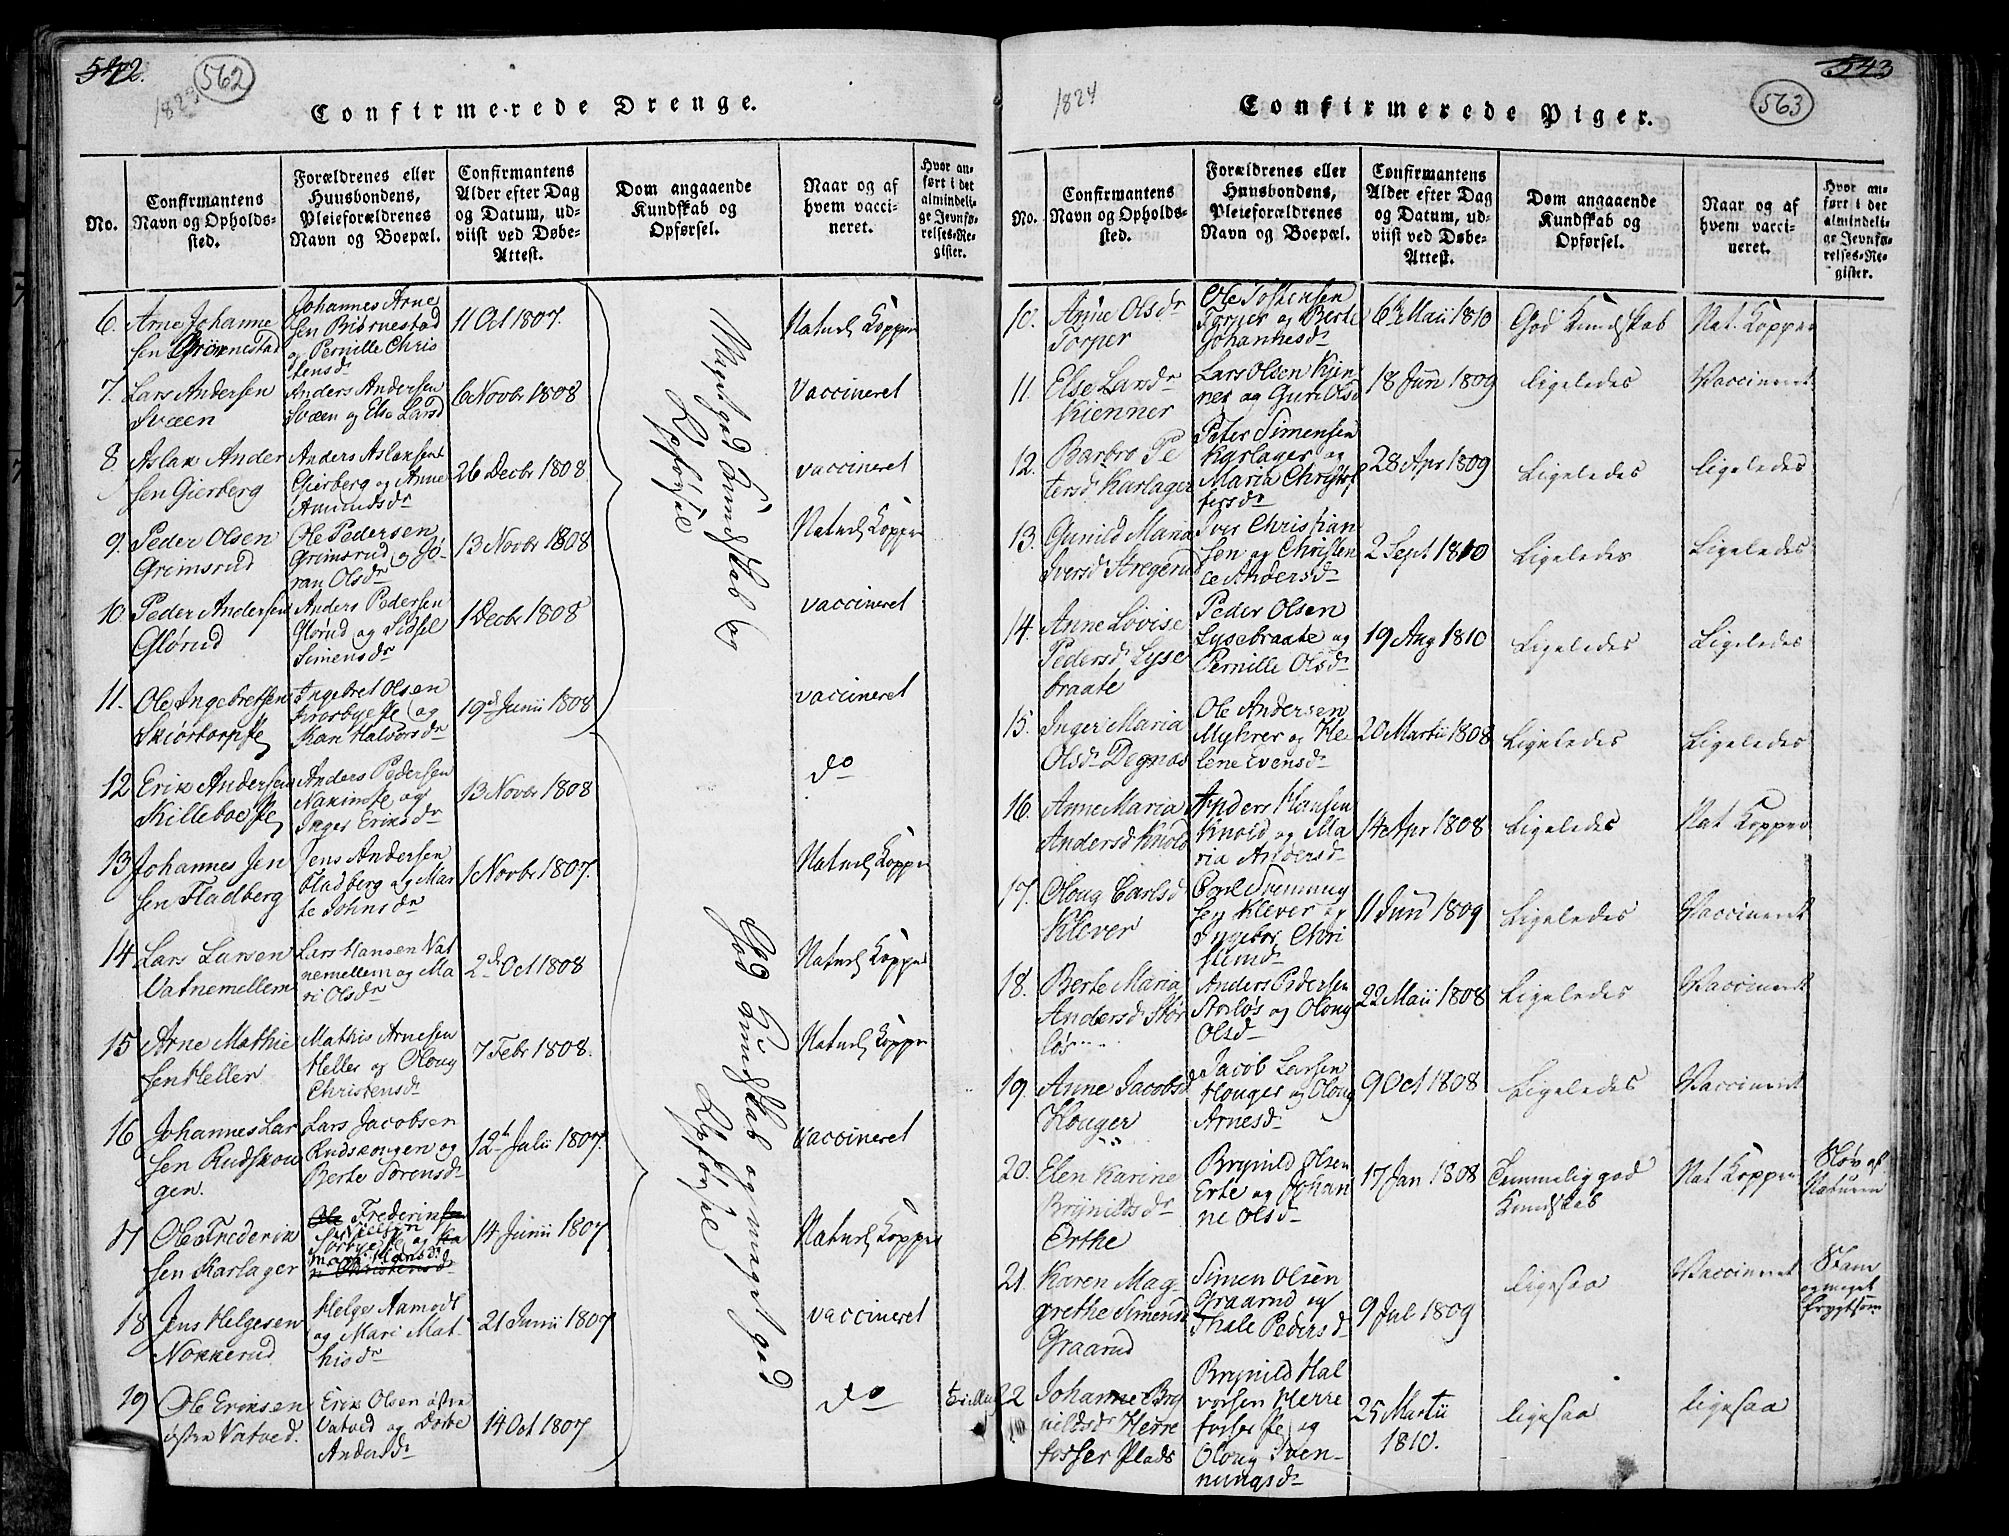 542.
562
1823
Confirmerede Drenge.
No.
Confirmantens
Navn og Opholds-
sted.
Forældrenes eller
Huusbondens,
Pleieforældrenes
Navn og Boepæl.
Confirmantens
Alder efter Dag
og Datum, ud-
viist ved Døbe-
Attest.
Dom angaaende
Kundskab og
Opførsel.
Naar og af
hvem vacci-
neret.
Hvor an-
ført i det
almindeli-
ge Jevnfø-
relses-Re-
gister.
6.
Arne Johanne
sen
Johannes Arne
sen Biørnestad
og Pernille Chris
tensdr
11 Oct 1807.
Naturl Kopper
7.
Lars Andersen
Svæen
Anders Andersen
Svæen og Else Larsd
6 Novbr 1808
Vaccineret
8
Aslak Ander
sen Gierberg
Anders Aslaksen
Gierberg og Anne
Amundsdr
26 Decbr 1808
vaccineret
9.
Peder Olsen
Grimsrud
Ole Pedersen
Grimsrud og Gö-
ran Olsdr
13 Novbr 1808
Naturl Kopper
10
Peder Andersen
Glörud
Anders Pedersen
Glörud og Sidsel
Simensdr
1 Decbr 1808
vaccineret
11.
Ole Ingebretsen
Skiørtorp Pe
Ingebret Olsen
Krosbye Pe og
Kari Halvorsdr
19d Junii 1808
vaccineret
12
Erik Andersen
Killeboe Pe
Anders Pedersen
og
Inger Eriksdr
13 Novbr 1808
do
13
Johannes Jen
sen Fladberg
Jens Andersen
Fladberg og Mar
te Johnsdr
1 Novbr 1807.
Naturl Kopper
14
Lars Larsen
Vatnemellem
Lars Hansen Vat
nemellem og Ma
ri Olsdr
2d Oct 1808
Naturl Kopper
15
Arne Mathie
sen Heller
Mathis Arnesen
Heller og Oloug
Christensdr
7 Febr 1808.
Naturl Kopper
16
Johannes Lar
sen Rudskou
gen.
Lars Jacobsen
Rudskougen og
Berte Sorensdr
12te Julii 1807.
vaccineret
17
Ole Frederik
sen Karlager
Ole Frederiksen
14 Junii 1807
Naturl Kopper
18
Jens Helgesen
Nokkerud
Helge Aamodt
og Mari Mat
hisdr
21 Junii 1807
vaccineret
19
Ole Eriksen
östre Vatved.
Erik Olsen östre
Vatved og Dorte
Andersdr
14 Oct 1807
do
Meget god Kundskab og
Opførsel
God Kundskab og meget god
Opførsel
543
563
1824
Confirmerede Piger.
No.
Confirmantens
Navn og Opholds-
sted.
Forældrenes eller
Huusbondens,
Pleieforældrenes
Navn og Boepæl.
Confirmantens
Alder efter Dag
og Datum, ud-
viist ved Døbe-
Attest.
Dom angaaende
Kundskab og
Opførsel.
Naar og af
hvem vacci-
neret.
Hvor an-
ført i det
almindeli-
ge Jevnfø-
relses-Re-
gister.
10.
Anne Olsdr
Torper
Ole Tostensen
Torper og Berte
Johannesdr
6te Maii 1810
God Kundskab
Nat. Kopper
11.
Else Larsdr
Kienner
Lars Olsen Kjen
ner og Guri Olsd
18 Jun 1809
ligeledes
Vaccineret
12.
Barbro Pe
tersd Karlager
Peter Simensen
Karlager og
Maria Christof
fersdr
28 Apr 1809
Ligeledes
ligeledes
13.
Gunild Maria
Iversd Stregerud
Iver Christian
sen og Christen
ce Andersdr
2 Sept 1810
Ligeledes
Ligeledes
14.
Anne Lovise
Pedersd Lysse
braate
Peder Olsen
Lyssebraate og
Pernille Olsdr
19 Aug 1810
Ligeledes
Ligeledes
15.
Inger Maria
Olsdr Degnæs
Ole Andersen
Myhrer og He
lene Evensdr
20 Martii 1808
Ligeledes
Ligeledes
16.
Anne Maria
Andersd Knold
Anders Hansen
Knold og Ma
ria Andersdr
14 Apr 1808
Ligeledes
Nat Kopper
17.
Oloug Carlsd
Klever
Carl Svenning
sen Klever og
Ingebor Chri
stiansdr
11 Jun 1809
Ligeledes
Vaccineret
18.
Berte Maria
Andersd Stör
lös
Anders Pedersen
Storløs og Oloug
Olsdr
22 Maii 1808
Ligeledes
Vaccineret
19.
Anne Jacobsd
Houger
Jacob Larsen
Houger og Oloug
Arnesdr
9 Oct 1808
Ligeledes
Vaccineret
20.
Elen Karine
Brynildsdr
Erthe
Brynild Olsen
Erte og Johan
ne Olsdr
17 Jan 1808
Temmelig god
Kundskab
Nat Kopper
Sløv af
Naturen
21.
Karen Mag
grethe Simensd
Graarud
Simen Olsen
Graarud og
Thale Pedersd
9 Jul 1809
ligesaa
Vaccineret
Stam
og meget
frygtsom
22
Johanne Bry
nildsdr Herre
fosser Plads
Brynild Hal
vorsen Herre
fosser Pe og
Oloug Sven-
nungsdr
25 Martii
1810.
ligesaa
ligesaa